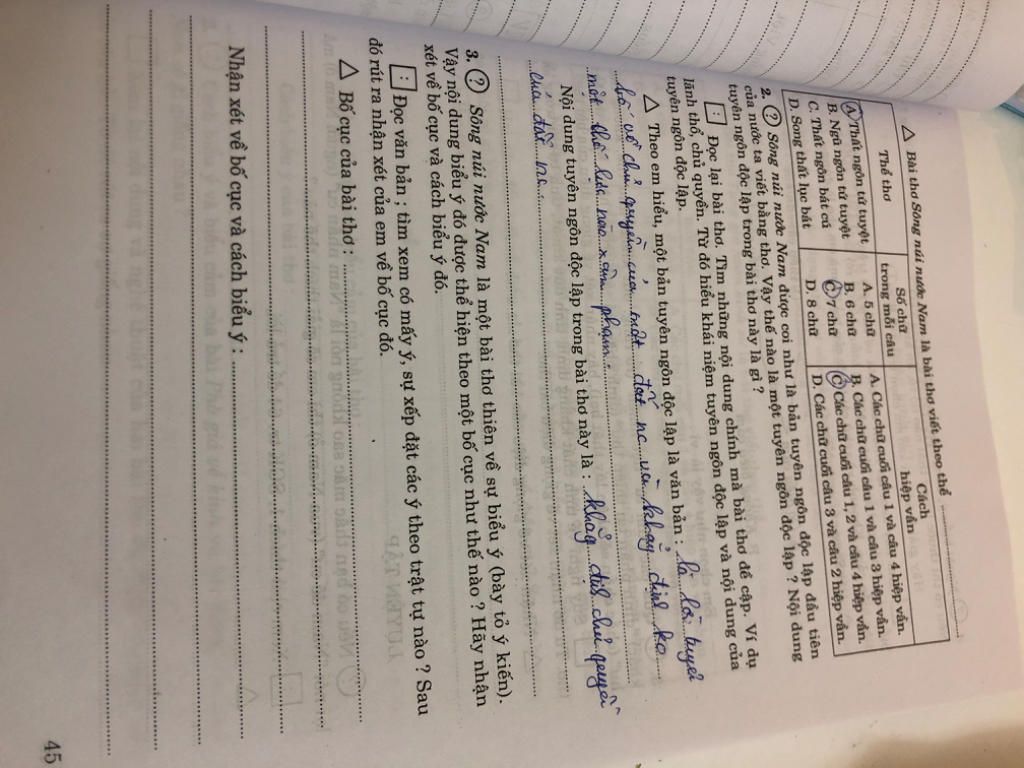 △ Bài thơ Sông núi nước Nam là bài thơ viết theo thể
Thể thơ
Số chữ trong mỗi câu
Cách hiệp vần
A. Thất ngôn tứ tuyệt
A. 5 chữ
A. Các chữ cuối câu 1 và câu 4 hiệp vần.
B. Ngũ ngôn tứ tuyệt
B. 6 chữ
B. Các chữ cuối câu 1 và câu 3 hiệp vần.
C. Thất ngôn bát cú
C. 7 chữ
C. Các chữ cuối câu 1, 2 và câu 4 hiệp vần.
D. Song thất lục bát
D. 8 chữ
D. Các chữ cuối câu 3 và câu 2 hiệp vần.
2. ? Sông núi nước Nam được coi như là bản tuyên ngôn độc lập đầu tiên
của nước ta viết bằng thơ. Vậy thế nào là một tuyên ngôn độc lập ? Nội dung
tuyên ngôn độc lập trong bài thơ này là gì ?
: Đọc lại bài thơ. Tìm những nội dung chính mà bài thơ đề cập. Ví dụ
lãnh thổ, chủ quyền. Từ đó hiểu khái niệm tuyên ngôn độc lập và nội dung của
tuyên ngôn độc lập.
△ Theo em hiểu, một bản tuyên ngôn độc lập là văn bản : là lời tuyên
bố về chủ quyền của một đất nc và khẳng định ko
một thế lực nào xâm phạm.
Nội dung tuyên ngôn độc lập trong bài thơ này là : khẳng định chủ quyền
của đất nc.
3. ? Sông núi nước Nam là một bài thơ thiên về sự biểu ý (bày tỏ ý kiến).
Vậy nội dung biểu ý đó được thể hiện theo một bố cục như thế nào ? Hãy nhận
xét về bố cục và cách biểu ý đó.
: Đọc văn bản ; tìm xem có mấy ý, sự xếp đặt các ý theo trật tự nào ? Sau
đó rút ra nhận xét của em về bố cục đó.
△ Bố cục của bài thơ :
Nhận xét về bố cục và cách biểu ý :
45